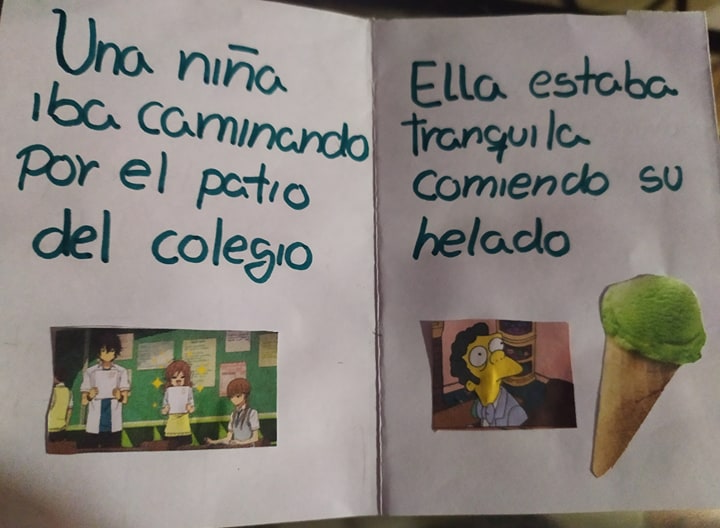 Una niña
iba caminando
por el patio
del colegio
Ella estaba
tranquila
comiendo su
helado